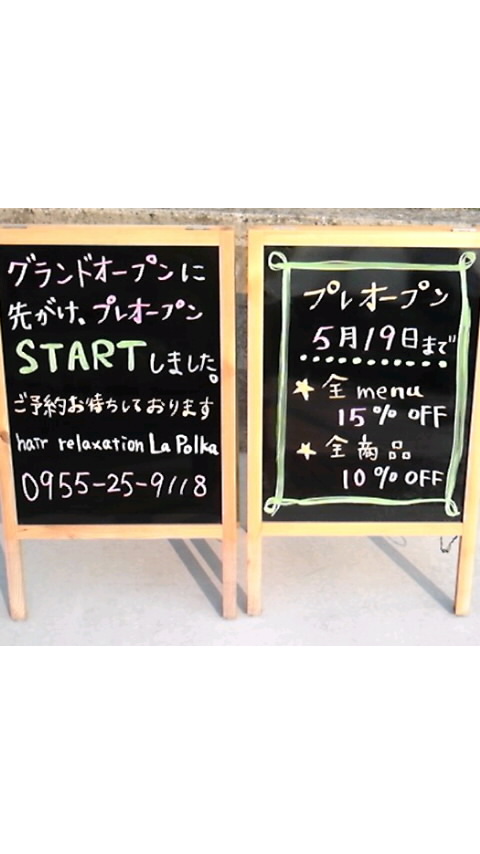 グランドオープンに
先がけ、プレオープン
STARTしました。
ご予約お待ちしております
hair relaxation La Polka
0955-25-9118
プレオープン
5月19日まで
★ 全 menu
15% OFF
★ 全商品
10% OFF